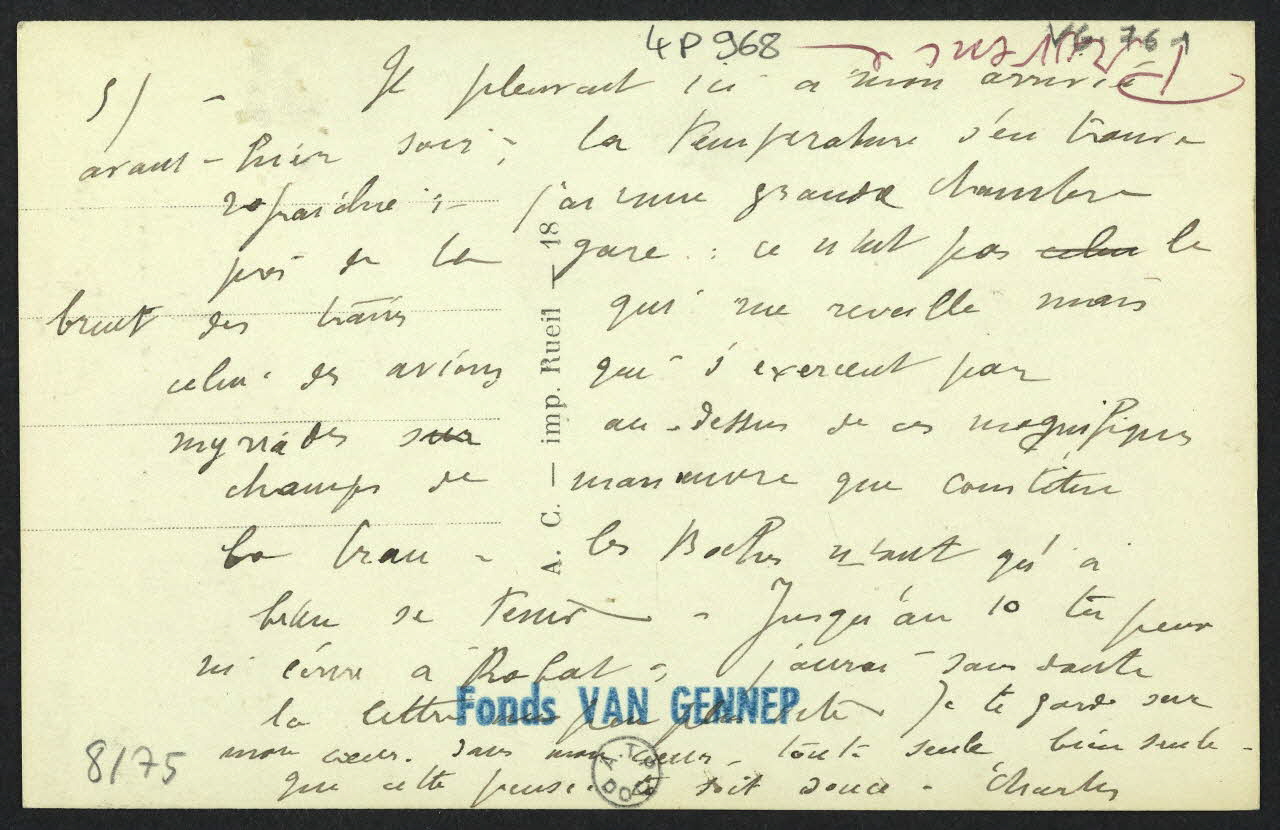 4P968
VG. 76-1
5/ - Il pleuvait ici a mon arrivée
avant-hier soir ; la temperature s'en trouve
rafraichie ;- j'ai une grande chambre
près de la gare : ce n'est pas celui le
bruit des trains qui me reveille mais
celui des avions qui s'exercent par
myriades sur au-dessus de ces magnifiques
champs de manœuvre que constitue
la Crau - les Boches n'ont qu'à
bien se tenir - Jusqu'au 10 tu peux
m'écrire à Rabat ; j'aurai sans doute
la lettre un peu plus vite. Je te garde sur
mon cœur. dans mon cœur, toute seule bien seule -
que cette pensée te soit douce - Charles
A. C. — imp. Rueil — 18
Fonds VAN GENNEP
A.T.P.
8/75